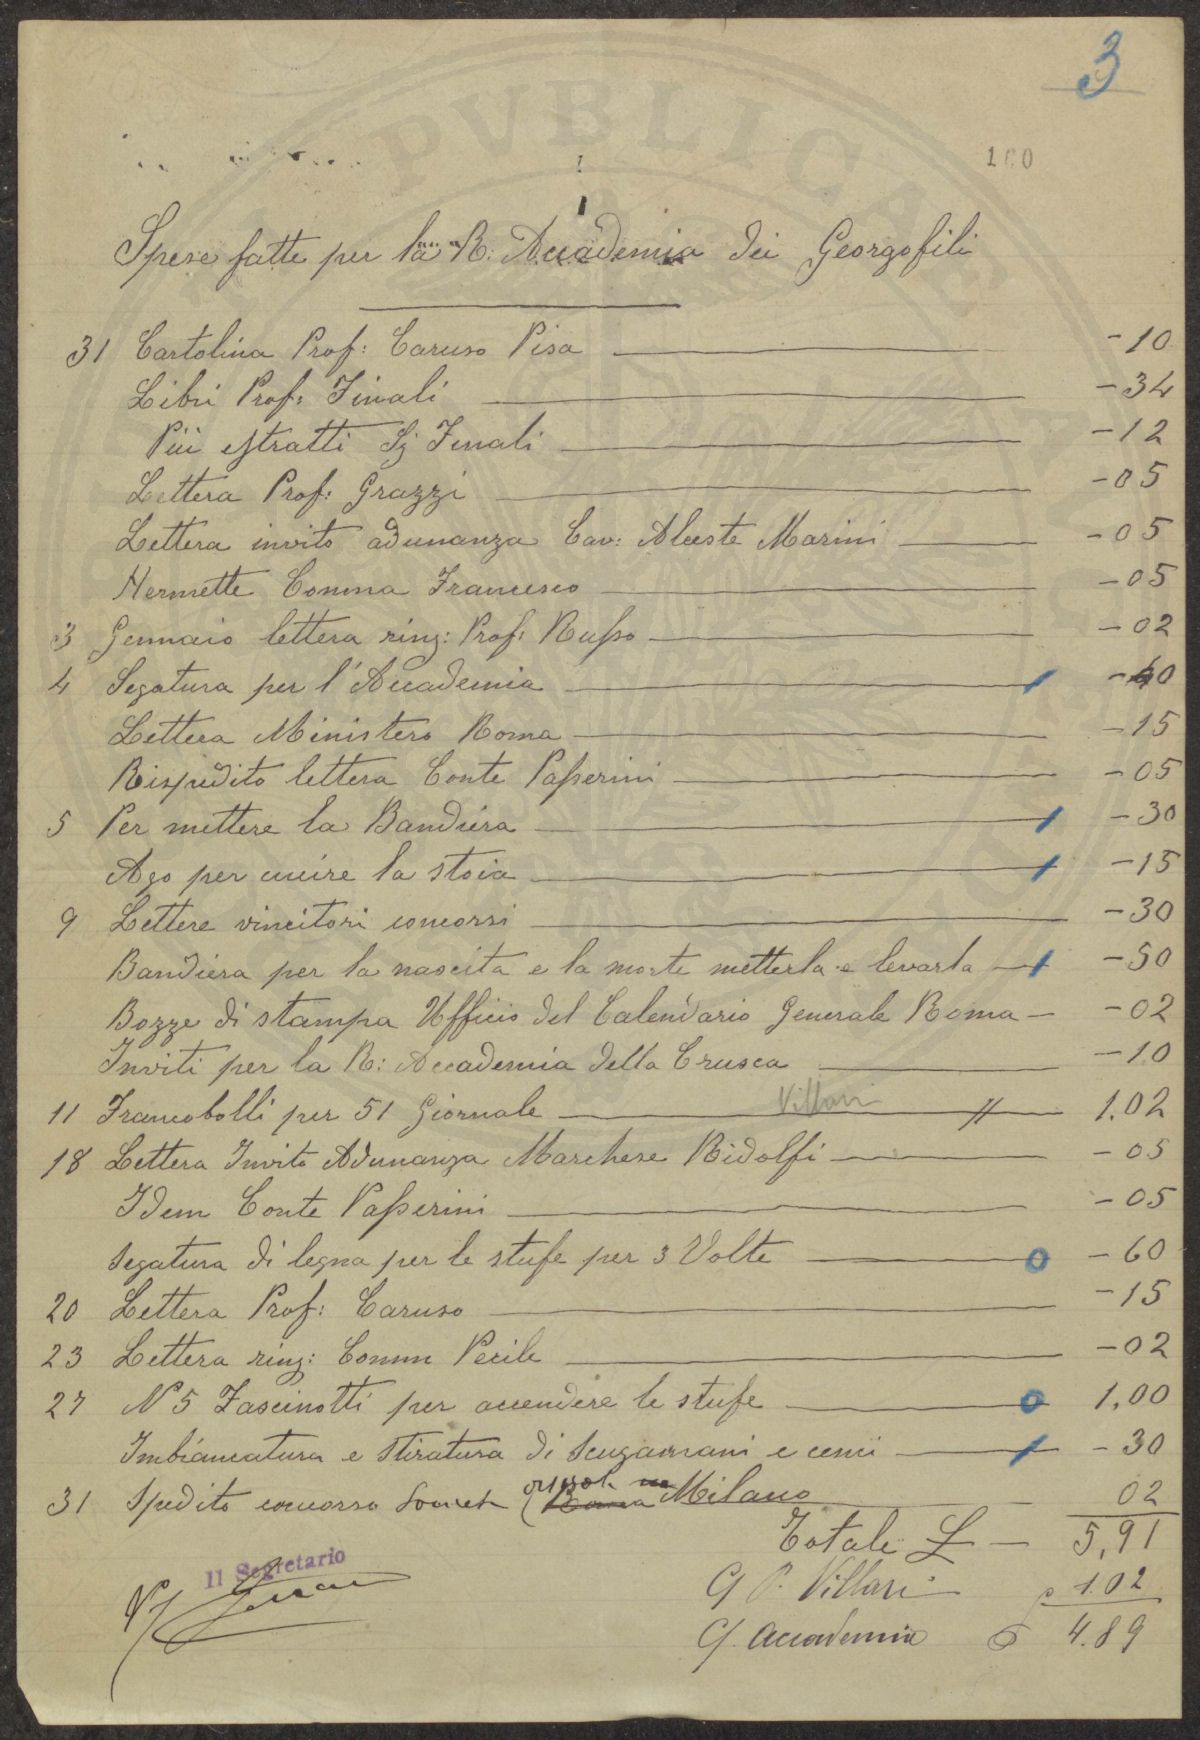 3
100
Spese fatte per la R. Accademia dei Georgofili
31 Cartolina Prof: Caruso Pisa - 10
Libri Prof: Finali - 34
Più estratti Finali - 12
Lettera Prof: Grazzi - 05
Lettera invito adunanza Cav: Alceste Marini - 05
Francesco - 05
3 Gennaio lettera ring: Prof: Russo - 02
4 Segatura per l'Accademia - 40
Lettera Ministero Roma - 15
Rispedito lettera Conte Passerini - 05
5 Per mettere la Bandiera - 30
Ago per cucire la stoia - 15
9 Lettere vincitori concorsi - 30
Bandiera per la nascita e la morte metterla e levarla - 50
Bozze di stampa Ufficio del Calendario Generale Roma - - 02
Inviti per la R: Accademia della Crusca - 10
11 Francobolli per 51 Giornale Villari 1.02
18 Lettera Invito Adunanza Marchese Ridolfi - 05
Idem Conte Passerini - 05
Segatura di legna per le stufe per 3 Volte - 60
20 Lettera Prof: Caruso - 15
23 Lettera ring: Comm Pecile - 02
27 N 5 Fascinotti per accendere le stufe 1,00
Imbiancatura e stiratura di sciugamani e cenci - 30
31 Spedito concorso Milano 02
Totale L - 5,91
P. Villari 1.02
Accademia 4.89
Il Segretario